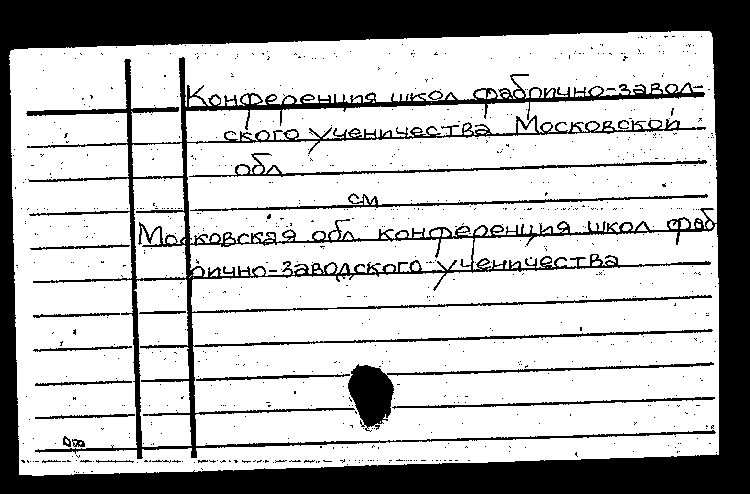 Конференция школ фабрично-завод-
ского ученичества Московской
обл
см
Московская обл. конференция школ фаб
рично-заводского ученичества